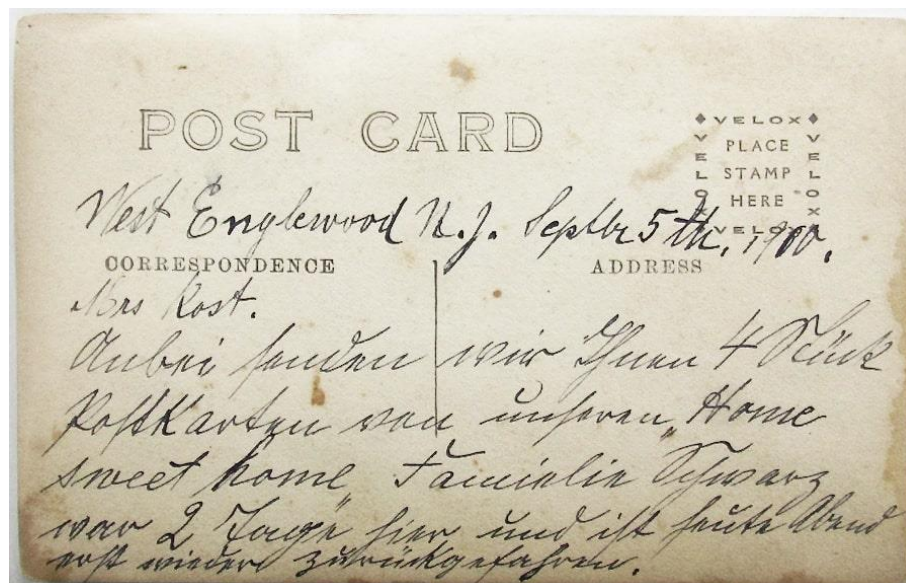 POST CARD
VELOX
VELOX
PLACE
STAMP
HERE
VELOX
VELOX
West Englewood N.J. Septbr 5th, 1910.
CORRESPONDENCE
ADDRESS
Mrs Rost.
Anbei senden wir Ihnen 4 Stück
Postkarten von unseren „Home
sweet home“ Familie Schwarz
war 2 Tage hier und ist heute Abend
erst wieder zurückgefahren.